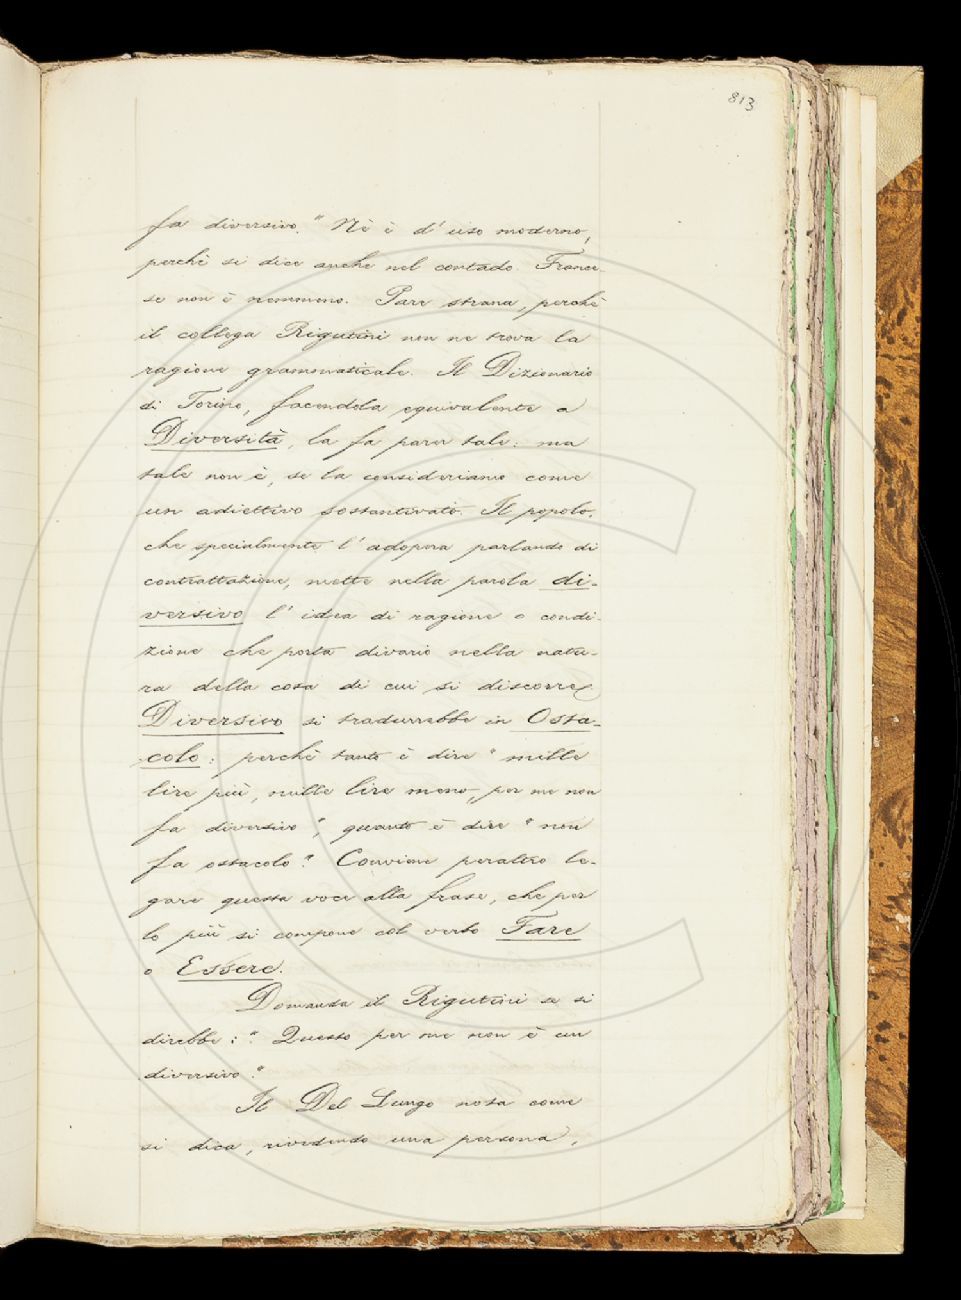 813
fa diversivo." Nè è d' uso moderno,
perchè si dice anche nel contado. France-
se non è nemmeno. Pare strana, perchè
il collega Rigutini non ne trova la
ragione grammaticale. Il Dizionario
di Torino, facendola equivalente a
Diversità, la fa parer tale: ma
tale non è, se la consideriamo come
un adiettivo sostantivato. Il popolo,
che specialmente l' adopera parlando di
contrattazione, mette nella parola di-
versivo l' idea di ragione o condi-
zione che porta divario nella natu-
ra della cosa di cui si discorre.
Diversivo si tradurrebbe in Osta-
colo: perchè tanto è dire "mille
lire più, mille lire meno, per me non
fa diversivo", quanto è dire "non
fa ostacolo." Conviene peraltro le-
gare questa voce alla frase, che per
lo più si compone col verbo Fare
o Essere.
Domanda il Rigutini se si
direbbe: "Questo per me non è un
diversivo."
Il Del Lungo nota come
si dica, rivedendo una persona,